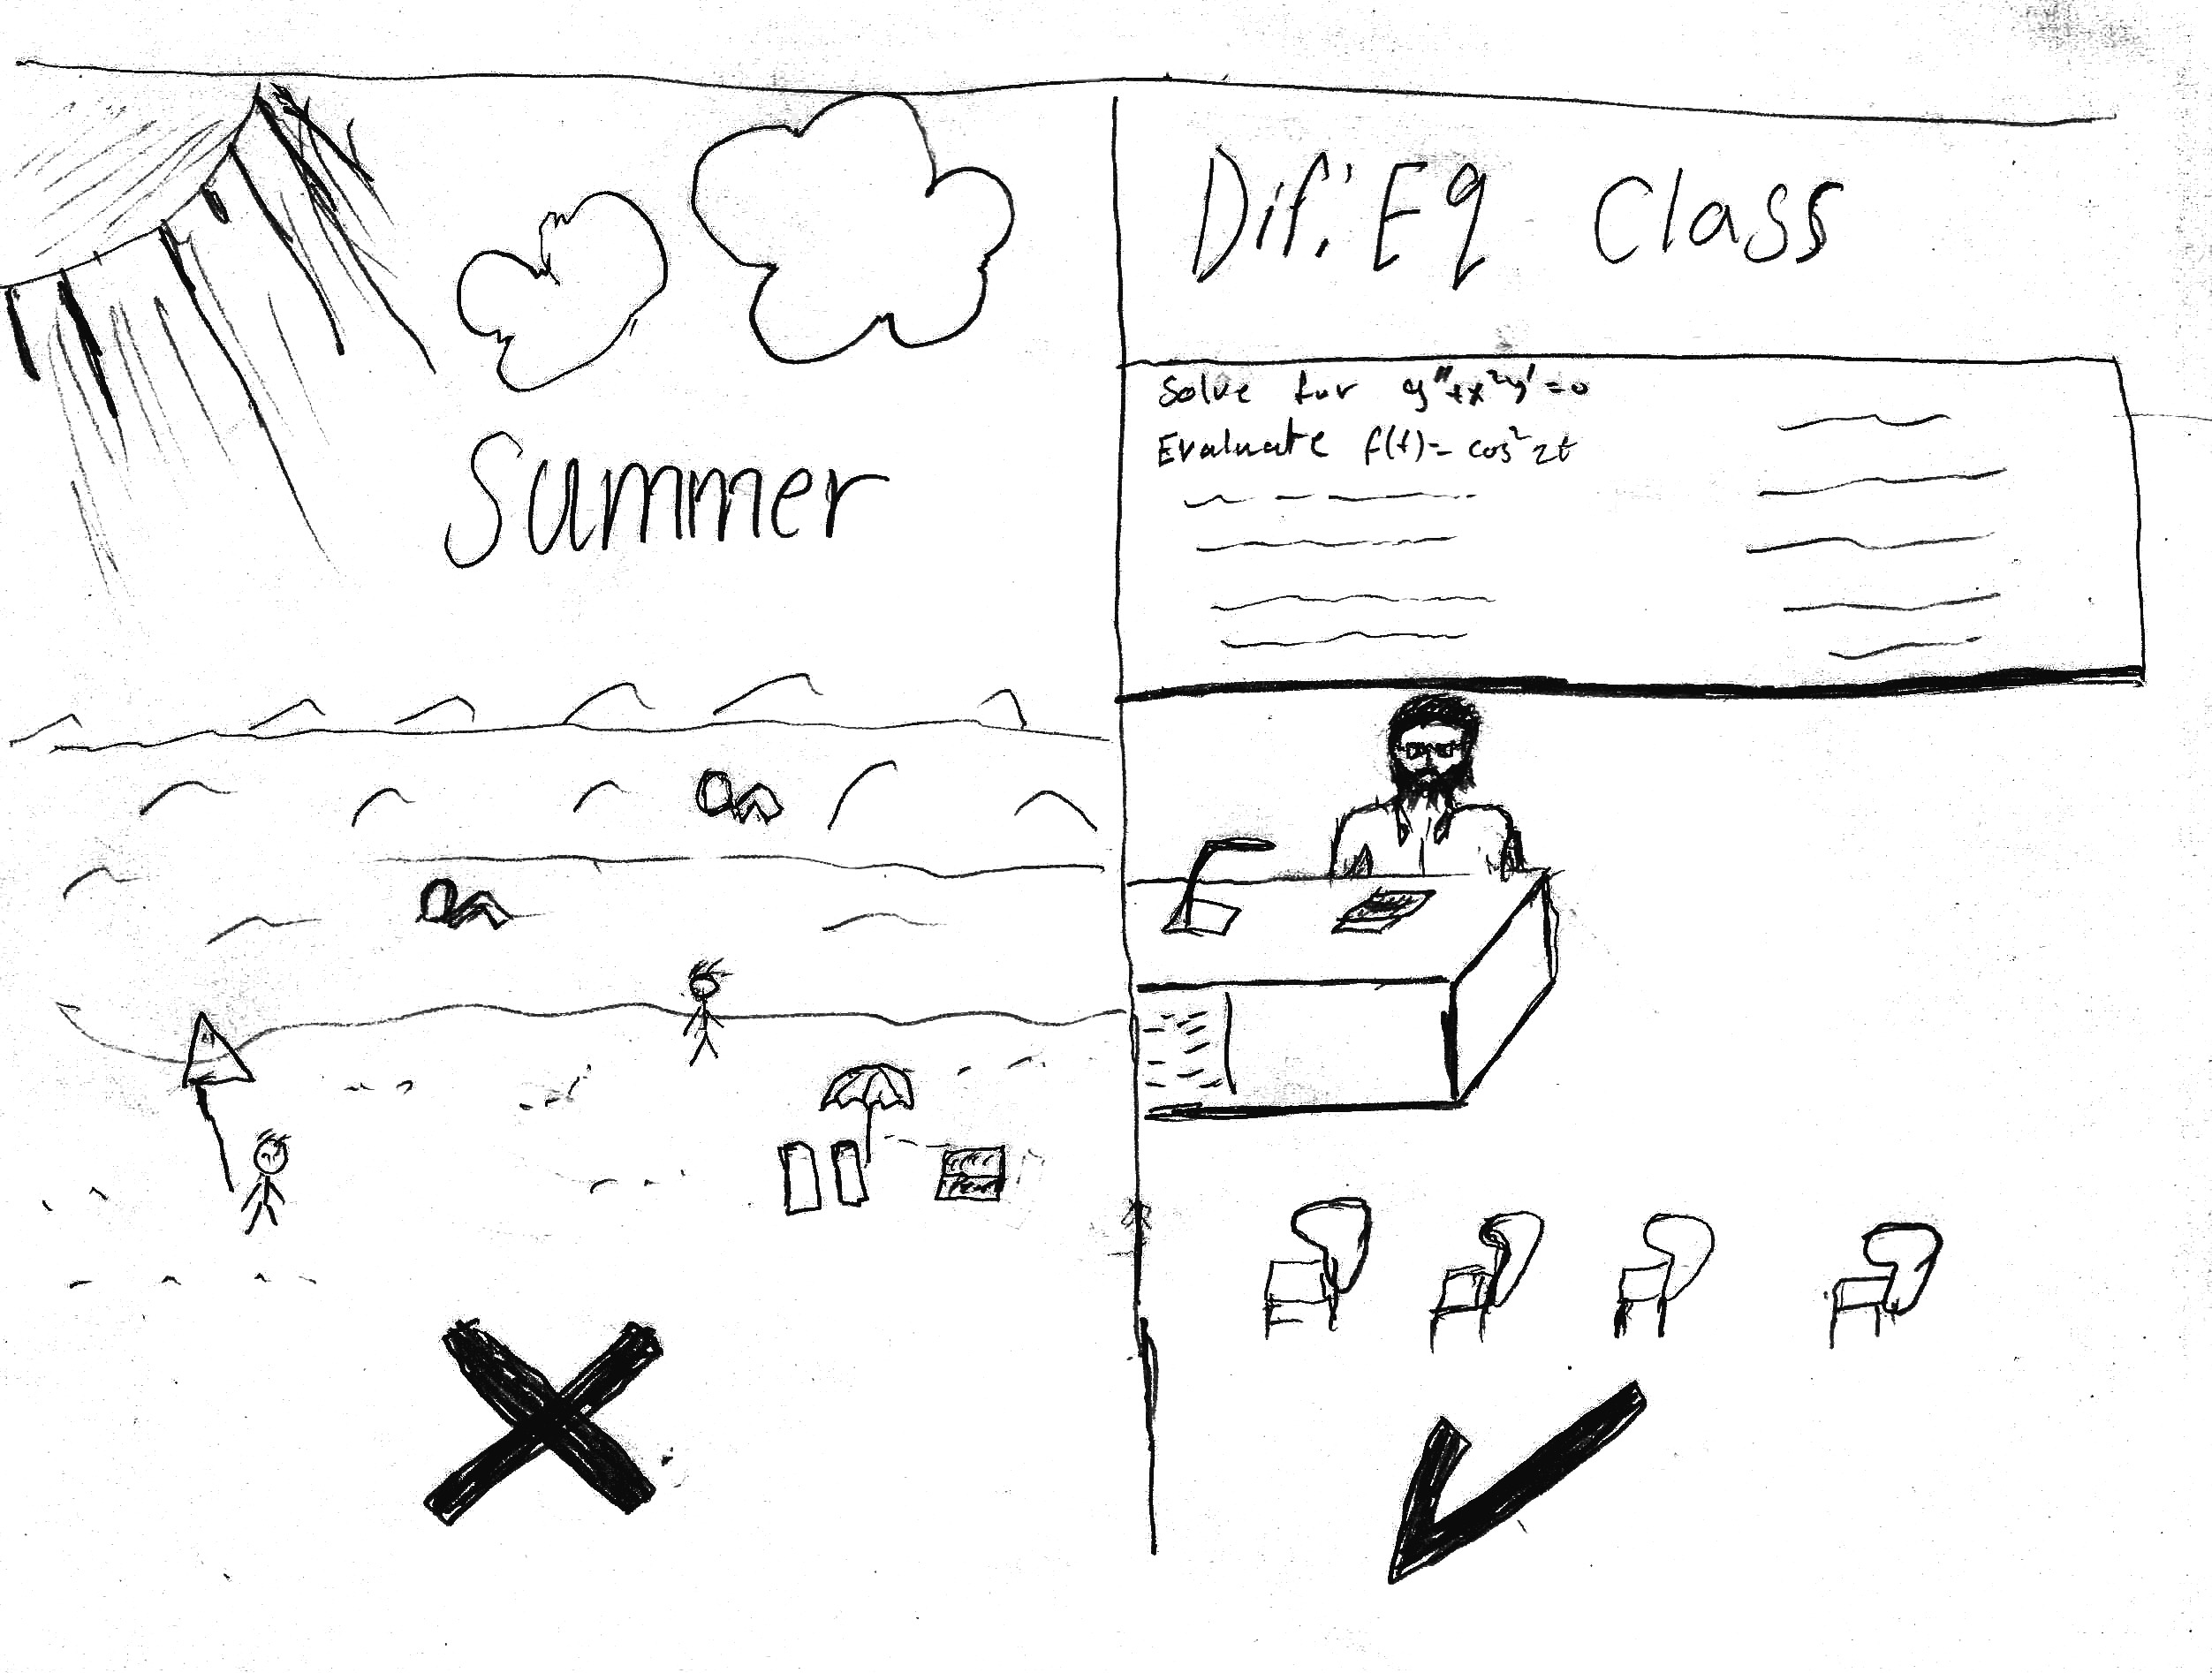 Summer
Dif. Eq Class
Solve for y"+x²y'=0
Evaluate f(t)= cos² 2t